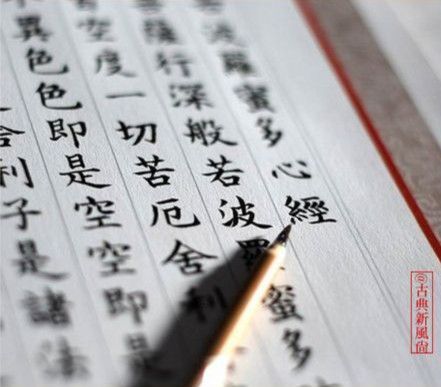 波羅蜜多心經
菩薩行深般若波羅蜜多
空度一切苦厄舍利
異色色即是空空即是
舍利子是諸法
古典新風尚